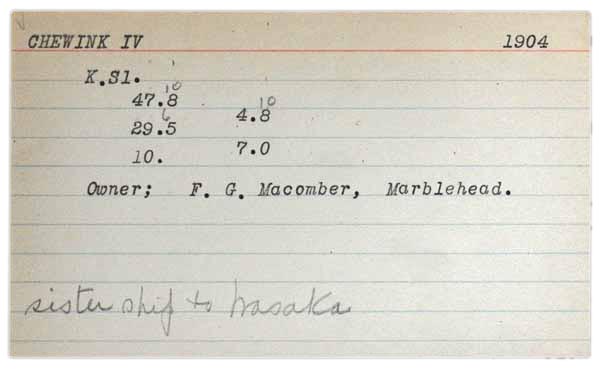 CHEWINK IV 1904
K.Sl.
10 10
47.8 4.8
6
29.5 7.0
10.
Owner; F. G. Macomber, Marblehead.
sister ship to Wasaka